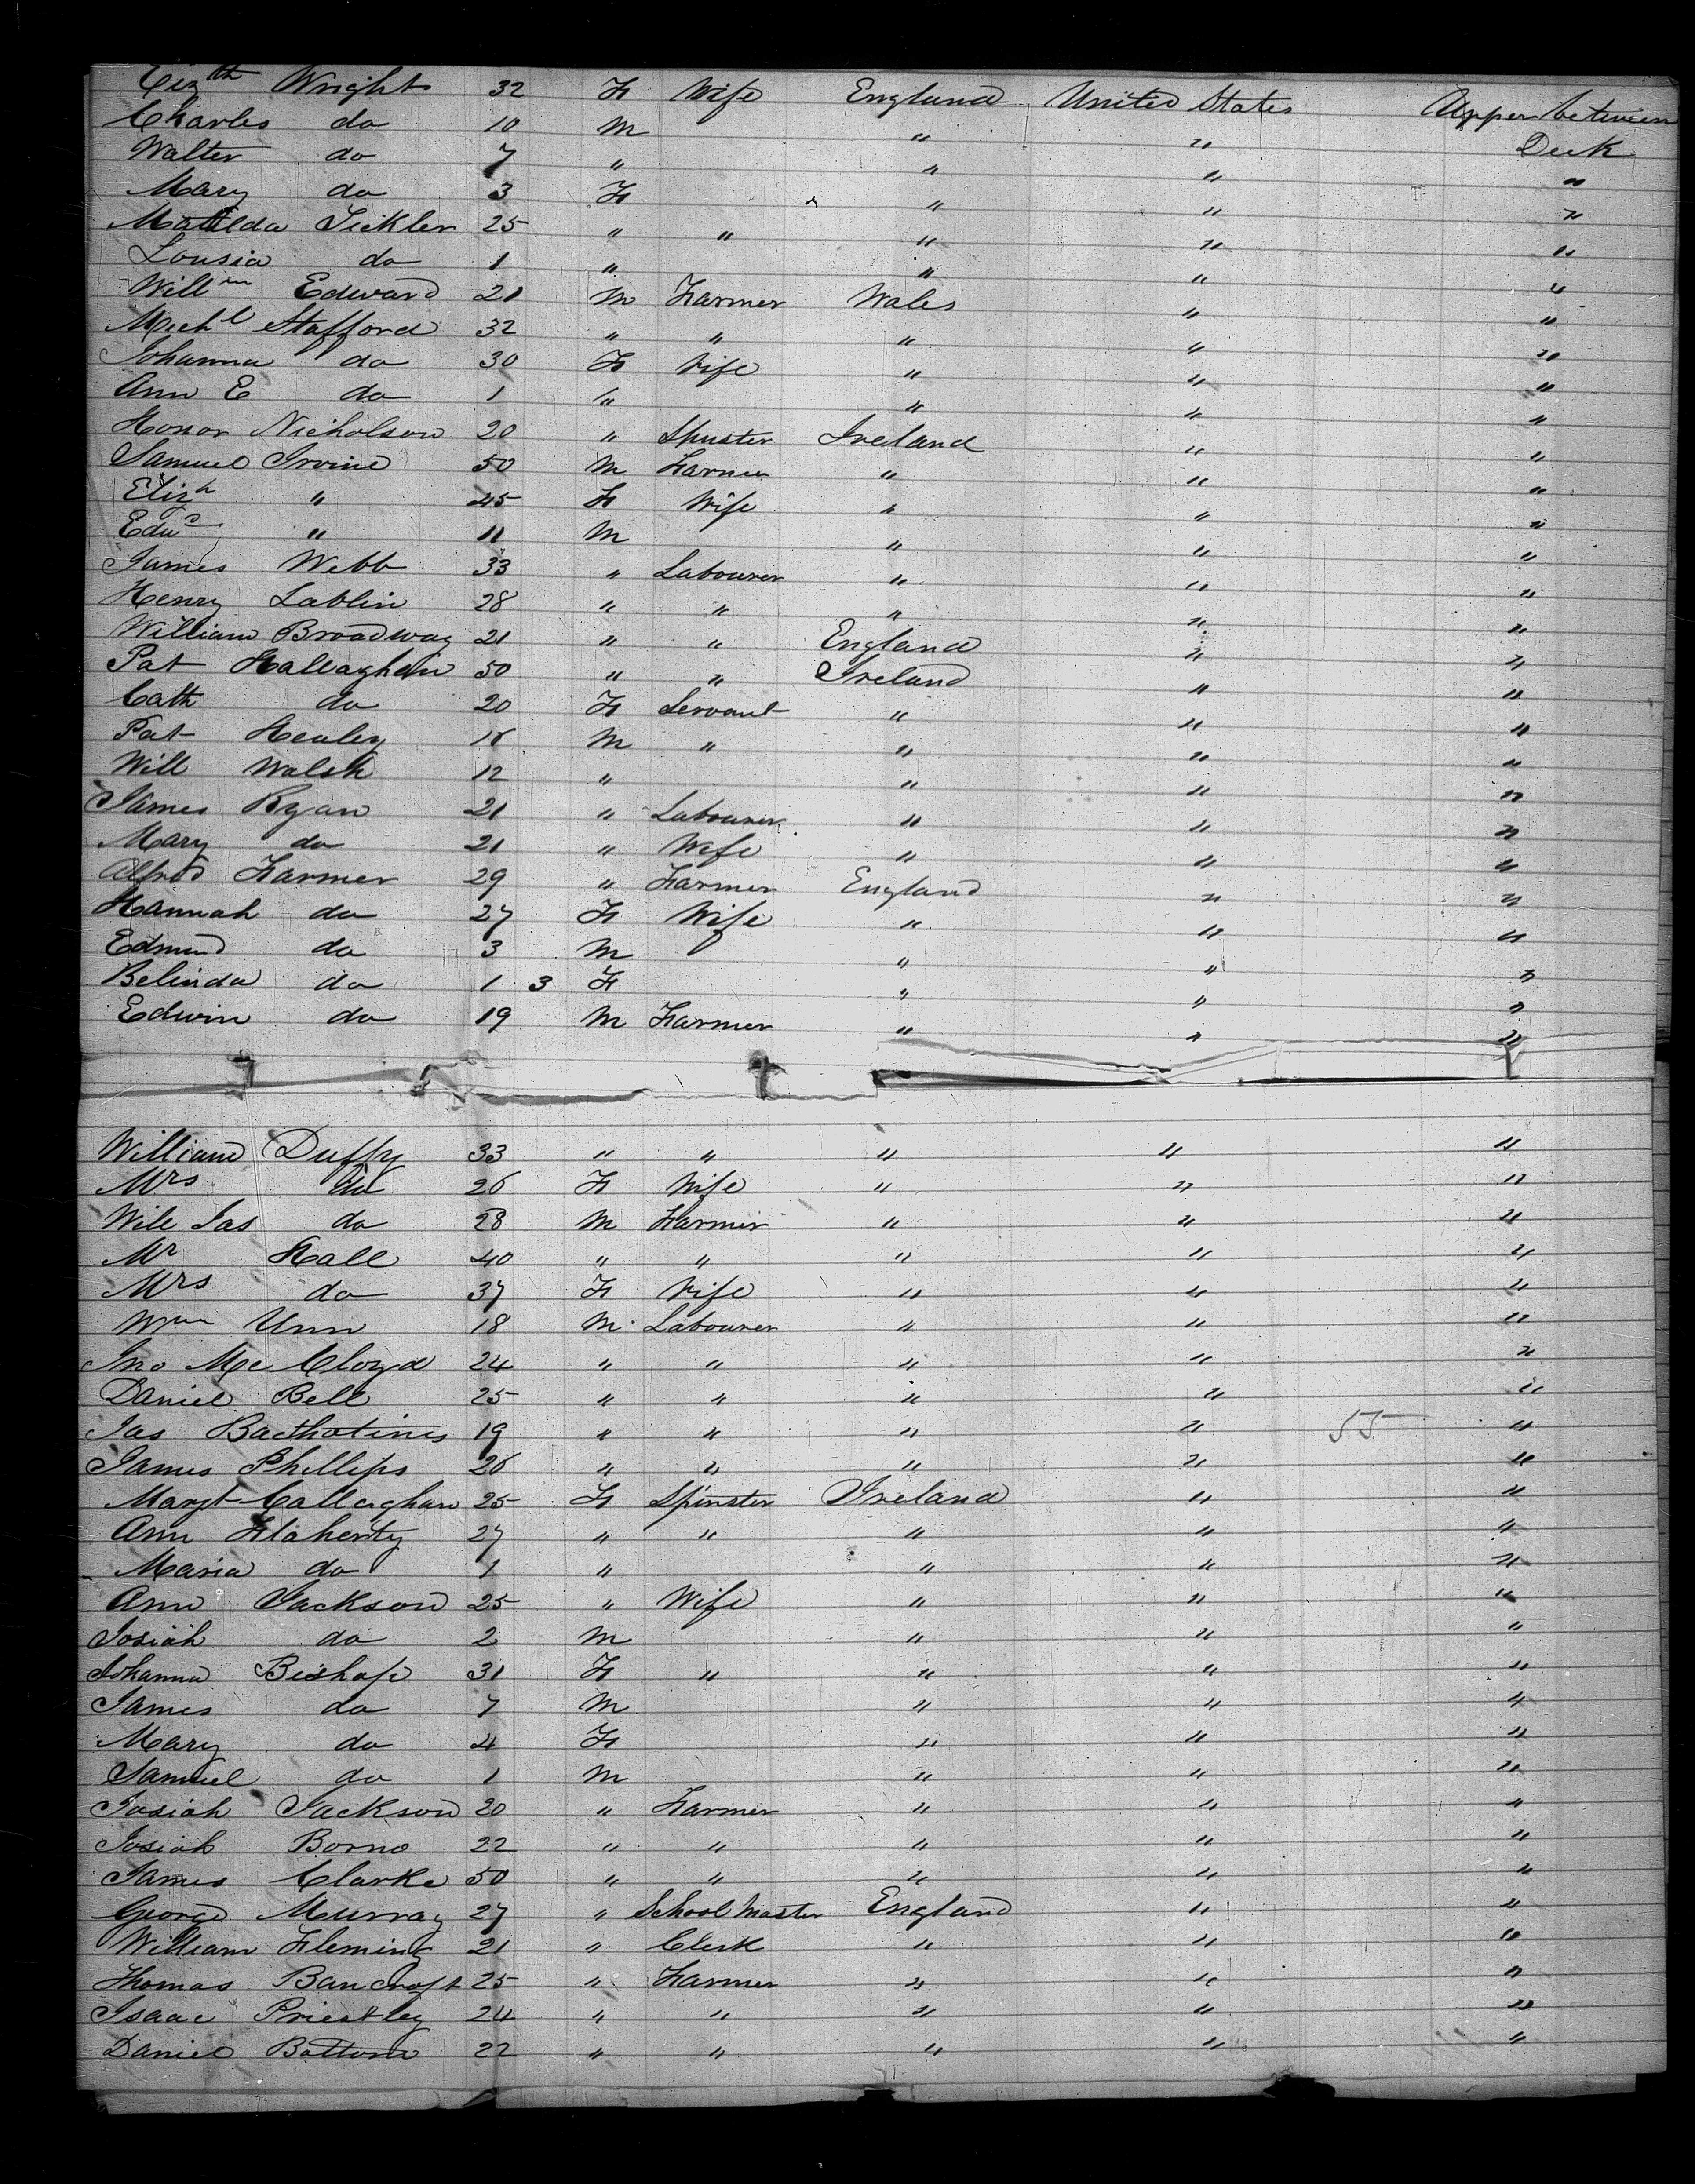 Eizth Wright 32 F Wife England United States Upper between
Charles do 10 M " " Deck
Walter do 7 " " " "
Mary do 3 F " " "
Matilda Tickler 25 " " " " "
Lousia do 1 " " " "
Willm Edward 21 M Farmer Wales " "
Michl Stafford 32 " " " " "
Johanna do 30 F Wife " " "
Ann E do 1 " " " "
Honor Nicholson 20 " Spinster Ireland " "
Samuel Irvine 50 M Farmer " " "
Elizh " 45 F Wife " " "
Edwd " 11 M " " "
James Webb 33 " Labourer " " "
Henry Lablin 28 " " " " "
William Broadway 21 " " England " "
Pat Hallaghan 50 " " Ireland " "
Cath do 20 F Servant " " "
Pat Healey M " " " "
Will Walsh 12 " " " "
James Ryan 21 " Labourer " " "
Mary do 21 " Wife " " "
Alfred Farmer 29 " Farmer England " "
Hannah do 27 F Wife " " "
Edmund do 3 M " " "
Belinda do 1 3 F " " "
Edwin do 19 M Farmer " " "
William Duffy 33 " " " " "
Mrs do 26 F Wife " " "
Will Jas do 28 M Farmer " " "
Mr Hall 40 " " " " "
Mrs do 37 F Wife " " "
Wm Unn 18 M Labourer " " "
Jno Mc Cloyd 24 " " " " "
Daniel Bell 25 " " " " "
Jas 19 " " " " 55 "
James Phillips 26 " " " " "
Margt Callaghan 25 F Spinster Ireland " "
Ann Flaherty 27 " " " " "
Maria do 1 " " " "
Ann Jackson 25 " Wife " " "
Josiah do 2 M " " "
Johanna Bishop 31 F " " " "
James do 7 M " " "
Mary do 4 F " " "
Samuel do 1 M " " "
Josiah Jackson 20 " Farmer " " "
Josiah Borno 22 " " " " "
James Clarke 50 " " " " "
George Murray 27 " School Master England " "
William Fleming 21 " Clerk " " "
Thomas Bancroft 25 " Farmer " " "
Isaac Priestley 24 " " " " "
Daniel Bottom 22 " " " " "